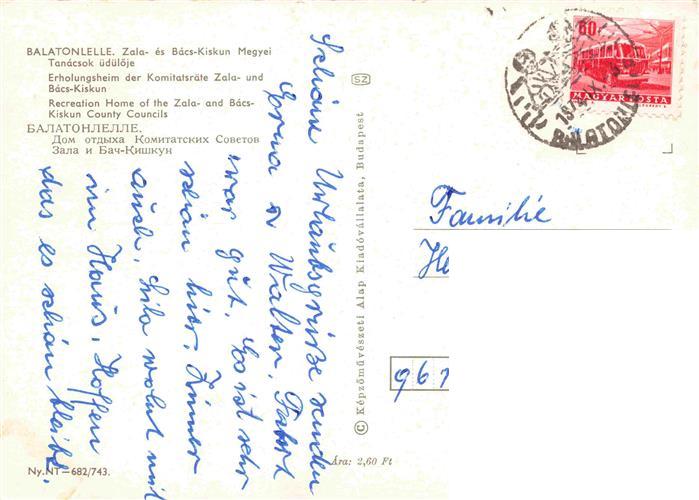 BALATONLELLE. Zala- és Bács-Kiskun Megyei
Tanácsok üdülője
Erholungsheim der Komitatsräte Zala- und
Bács-Kiskun
Recreation Home of the Zala- and Bács-
Kiskun County Councils
БАЛАТОНЛЕЛЛЕ.
Дом отдыха Комитатских Советов
Зала и Бач-Кишкун
Schöne Urlaubsgrüße senden
Erna u Walter. Fahrt
war gut. Es ist sehr
schön hier. Zimmer
auch. wohnt mit
im Haus. Hoffen
das es schön bleibt.
SZ
© Képzőművészeti Alap Kiadóvállalata, Budapest
60f
MAGYAR POSTA
BALATONLELLE
Familie
He
961
Ára: 2,60 Ft
Ny.NT—682/743.